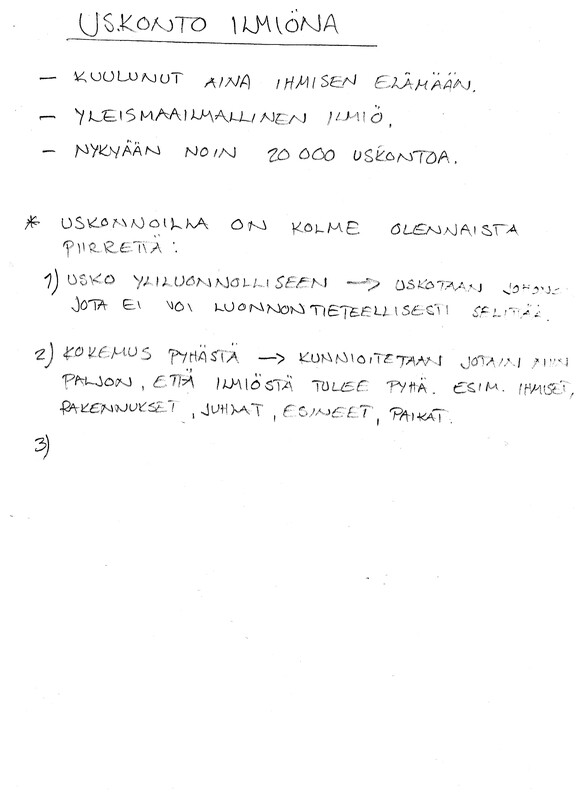 USKONTO ILMIÖNA
– KUULUNUT AINA IHMISEN ELÄMÄÄN.
– YLEISMAAILMALLINEN ILMIÖ.
– NYKYÄÄN NOIN 20 000 USKONTOA.
* USKONNOILLA ON KOLME OLENNAISTA
PIIRRETTÄ:
1) USKO YLILUONNOLLISEEN → USKOTAAN
JOTA EI VOI LUONNONTIETEELLISESTI SELITÄÄ.
2) KOKEMUS PYHÄSTÄ → KUNNIOITETAAN JOTAIN NIIN
PALJON, ETTÄ ILMIÖSTÄ TULEE PYHÄ. ESIM. IHMISET,
RAKENNUKSET, JUHLAT, ESINEET, PAIKAT.
3)